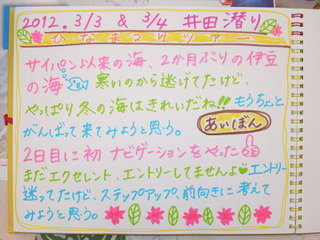 2012. 3/3 & 3/4 井田潜り
ひなまつりツアー
サイパン以来の海、2か月ぶりの伊豆
の海 寒いのから逃げてたけど、
やっぱり冬の海はきれいだね!! もうちょっと
がんばって来てみようと思う。 あいぽん
2日目に初ナビゲーションをやった
まだエクセレント、エントリーしてませんよ エントリー
迷ってたけど、ステップアップ、前向きに考えて
みようと思う。